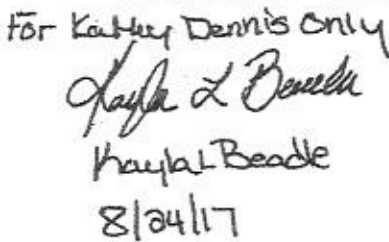 For Kathy Dennis Only
Kayla L Beadle
Kayla L Beadle
8/24/17